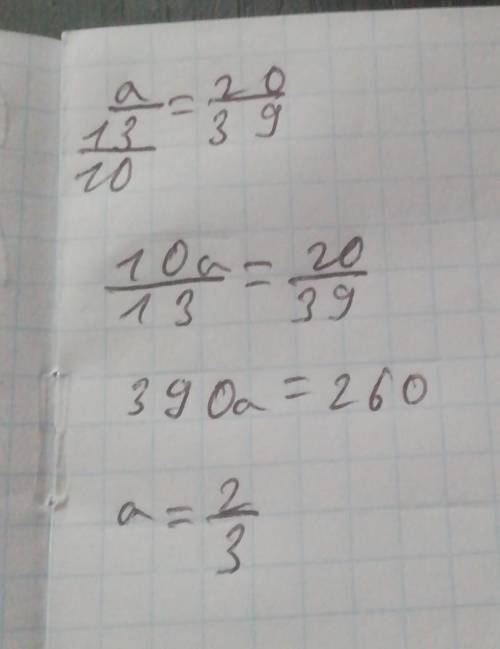 a/(13/10) = 20/39
10a/13 = 20/39
390a = 260
a = 2/3